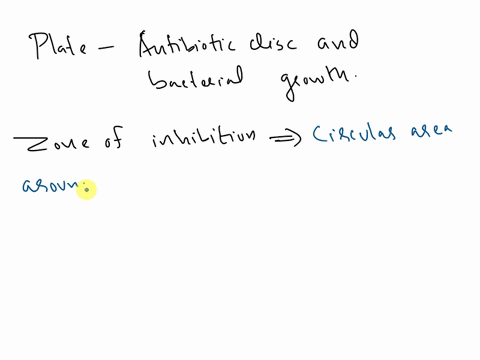 Plate - Antibiotic disc and
bacterial growth.
Zone of inhibition => Circular area
aroun